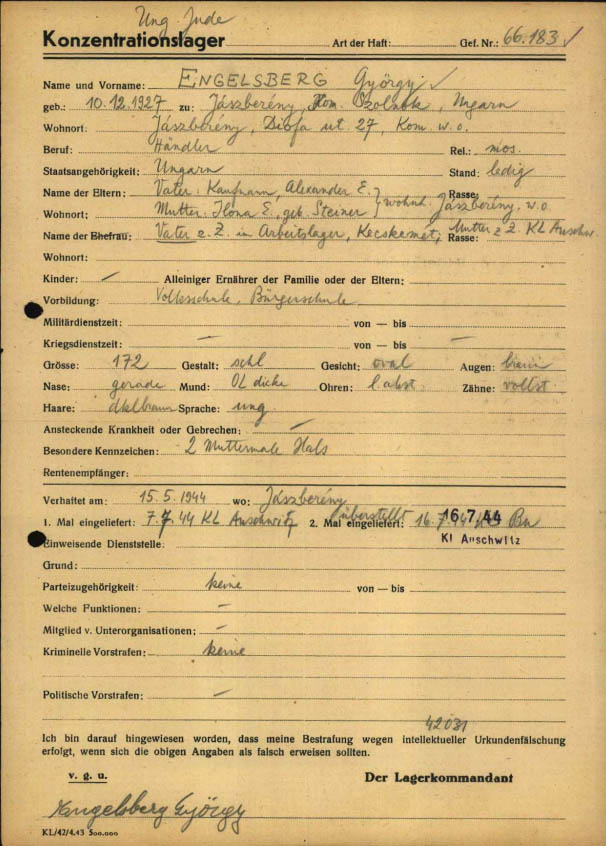 Ung. Jude
Konzentrationslager Art der Haft: Gef. Nr.: 66.183 ✓
Name und Vorname: ENGELSBERG György ✓
geb.: 10.12.1927 zu: Jászberény, Kom. Szolnok, Ungarn
Wohnort: Jászberény, Diofa ut. 27, Kom. w.o.
Beruf: Händler Rel.: mos.
Staatsangehörigkeit: Ungarn Stand: ledig
Name der Eltern: Vater: Kaufmann, Alexander E. Rasse:
Wohnort: Mutter: Ilona E., geb. Steiner } wohnh. Jászberény, w.o.
Name der Ehefrau: Vater z. Z. in Arbeitslager, Kecskemet, Rasse: Mutter z. Z. KL Auschw.
Wohnort:
Kinder: — Alleiniger Ernährer der Familie oder der Eltern:
Vorbildung: Volksschule, Bürgerschule
Militärdienstzeit: von — bis
Kriegsdienstzeit: — von — bis —
Grösse: 172 Gestalt: schl Gesicht: oval Augen: braun
Nase: gerade Mund: OL dicke Ohren: l. abst. Zähne: vollst.
Haare: dklbraun Sprache: ung
Ansteckende Krankheit oder Gebrechen: —
Besondere Kennzeichen: 2 Muttermale Hals
Rentenempfänger:
Verhaftet am: 15.5.1944 wo: Jászberény
1. Mal eingeliefert: 7.7.44 KL Auschwitz überstellt 2. Mal eingeliefert: 16.7.44 16.7.44 Bu
Kl Auschwitz
Einweisende Dienststelle:
Grund:
Parteizugehörigkeit: keine von — bis
Welche Funktionen: —
Mitglied v. Unterorganisationen: —
Kriminelle Vorstrafen: keine
Politische Vorstrafen: —
42031
Ich bin darauf hingewiesen worden, dass meine Bestrafung wegen intellektueller Urkundenfälschung
erfolgt, wenn sich die obigen Angaben als falsch erweisen sollten.
v. g. u. Der Lagerkommandant
Engelsberg György
KL/42/4.43 500.000